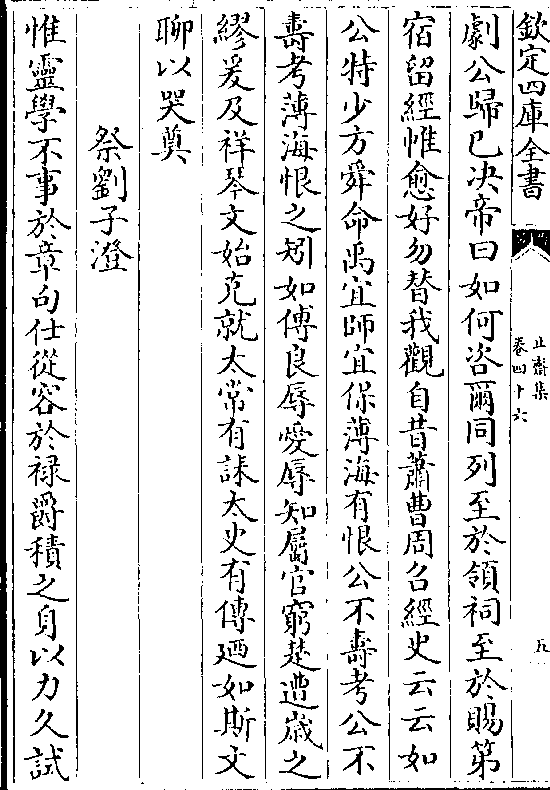 欽定四庫全書
止齋集
卷四十六
五
劇公歸已决帝曰如何咨爾同列至於領祠至於賜第
宿留經帷愈好勿替我觀自昔蕭曹周召經史云云如
公特少方舜命禹宜師宜保薄海有恨公不壽考公不
壽考薄海恨之矧如傅良辱愛辱知屬官窮楚遭歲之
繆爰及祥琴文始克就太常有誄太史有傳廼如斯文
聊以哭奠
祭劉子澄
惟靈學不事於章句仕從容於祿爵積之身以力久試